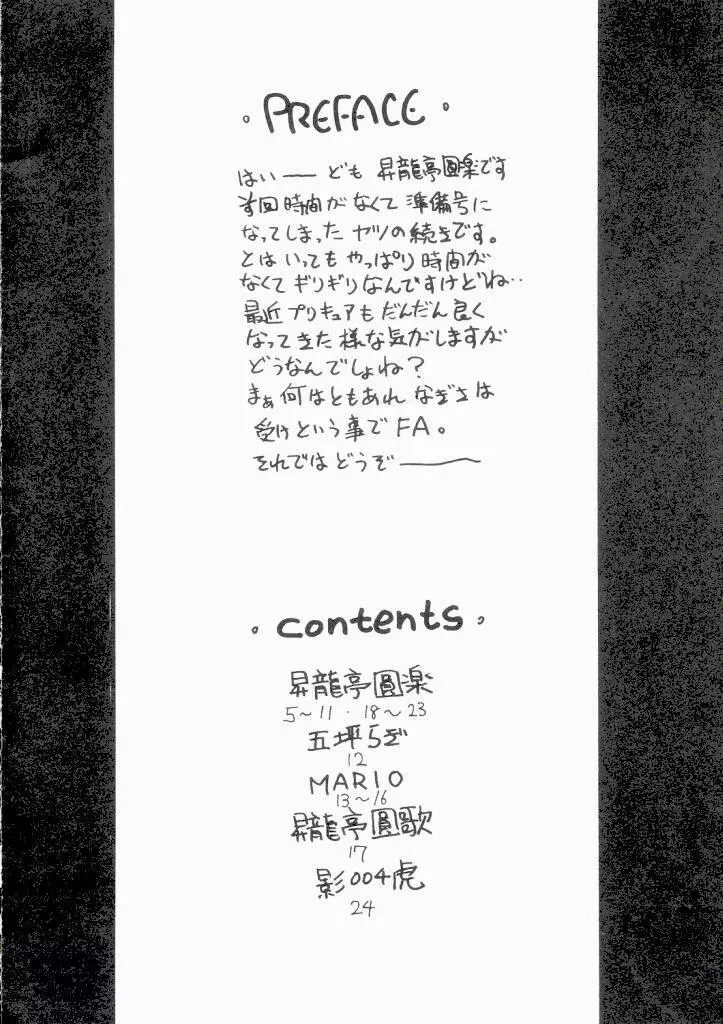 ・PREFACE・
はいーーども 昇龍亭圓楽です
前回時間がなくて準備号に
なってしまったヤツの続きです。
とはいってもやっぱり時間が
なくてギリギリなんですけどね‥
最近プリキュアもだんだん良く
なってきた様な気がしますが
どうなんでしょね?
まぁ何はともあれ なぎさは
受けという事でFA。
それではどうぞーー
・contents・
昇龍亭圓楽
5〜11・18〜23
五坪らぎ
12
MARIO
13〜16
昇龍亭圓歌
17
影004虎
24